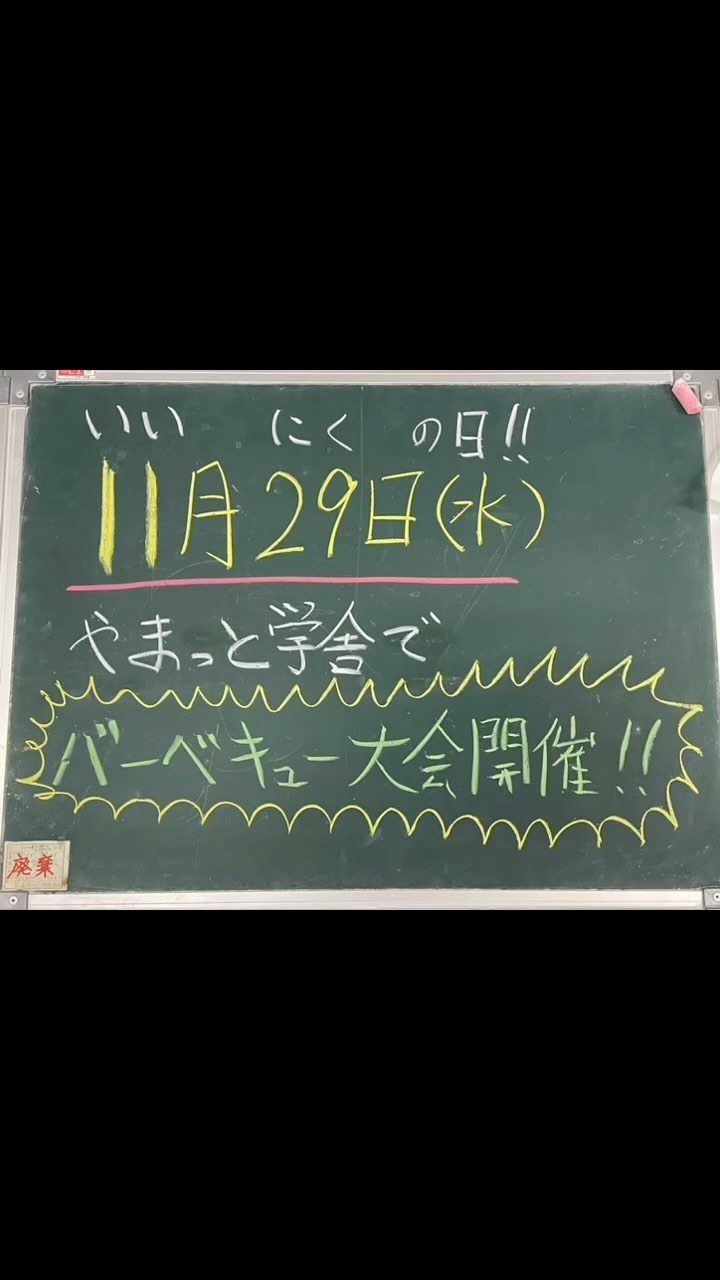 いい にく の日!!
11月29日(水)
やまっと学舎で
バーベキュー大会開催!!
廃棄